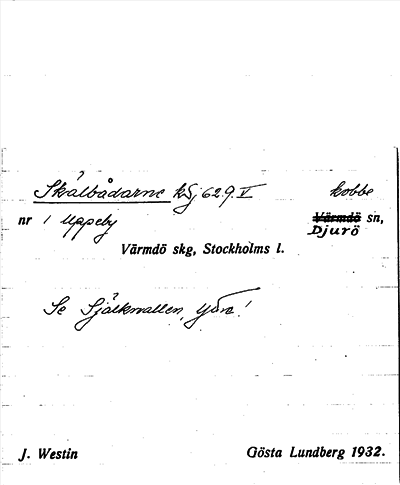 Skålbådarne kbj 62.9.V kobbe
nr 1 Uppeby Värmdö sn,
Djurö
Värmdö skg, Stockholms l.
Se Själkvallen,
J. Westin Gösta Lundberg 1932.